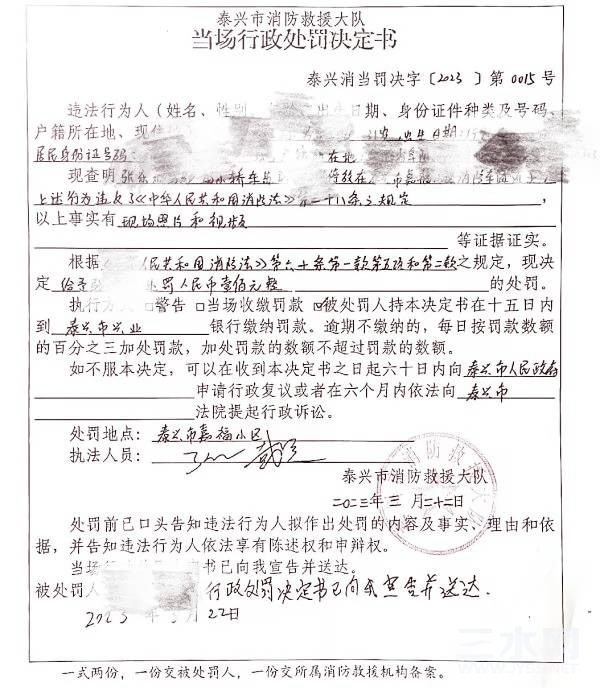 泰兴市消防救援大队
当场行政处罚决定书
泰兴消当罚决字〔2023〕第0015号
违法行为人（姓名、性别、出生日期、身份证件种类及号码、
户籍所在地、现住
居民身份证号码：
现查明
上述行为违反了《中华人民共和国消防法》第二十八条之规定，
以上事实有现场照片和视频
等证据证实。
根据《人民共和国消防法》第六十条第一款第五项和第二款之规定，现决
定给予罚人民币壹佰元整的处罚。
执行方式 □警告 □当场收缴罚款 ☑被处罚人持本决定书在十五日内
到泰兴市兴业银行缴纳罚款。逾期不缴纳的，每日按罚款数额
的百分之三加处罚款，加处罚款的数额不超过罚款的数额。
如不服本决定，可以在收到本决定书之日起六十日内向泰兴市人民政府
申请行政复议或者在六个月内依法向泰兴市
法院提起行政诉讼。
处罚地点：泰兴市嘉福小区
执法人员：
泰兴市消防救援大队
二〇二三年三月二十二日
处罚前已口头告知违法行为人拟作出处罚的内容及事实、理由和依
据，并告知违法行为人依法享有陈述权和申辩权。
当场书已向我宣告并送达。
被处罚人 行政处罚决定书已向我宣告并送达.
2023年3月22日
一式两份，一份交被处罚人，一份交所属消防救援机构备案。